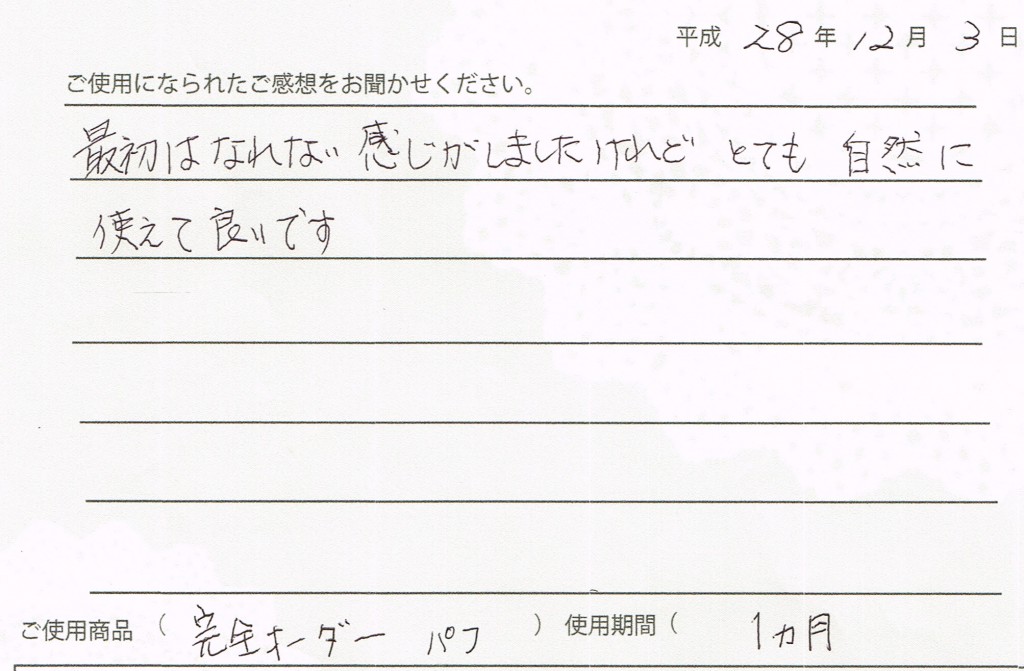 平成 28 年 12 月 3 日
ご使用になられたご感想をお聞かせください。
最初はなれない感じがしましたけれど とても 自然に
使えて良いです
ご使用商品 ( 完全オーダー パフ ) 使用期間 ( 1ヵ月